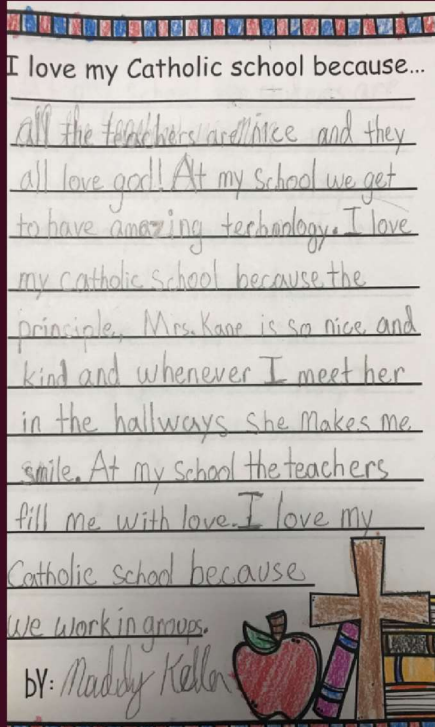 I love my Catholic school because...
all the teachers are nice and they
all love god! At my school we get
to have amazing technology. I love
my catholic school because, the
principle, Mrs. Kane is so nice and
kind and whenever I meet her
in the hallways she makes me
smile. At my school the teachers
fill me with love. I love my
Catholic school because
we work in groups.
bY: Maddy